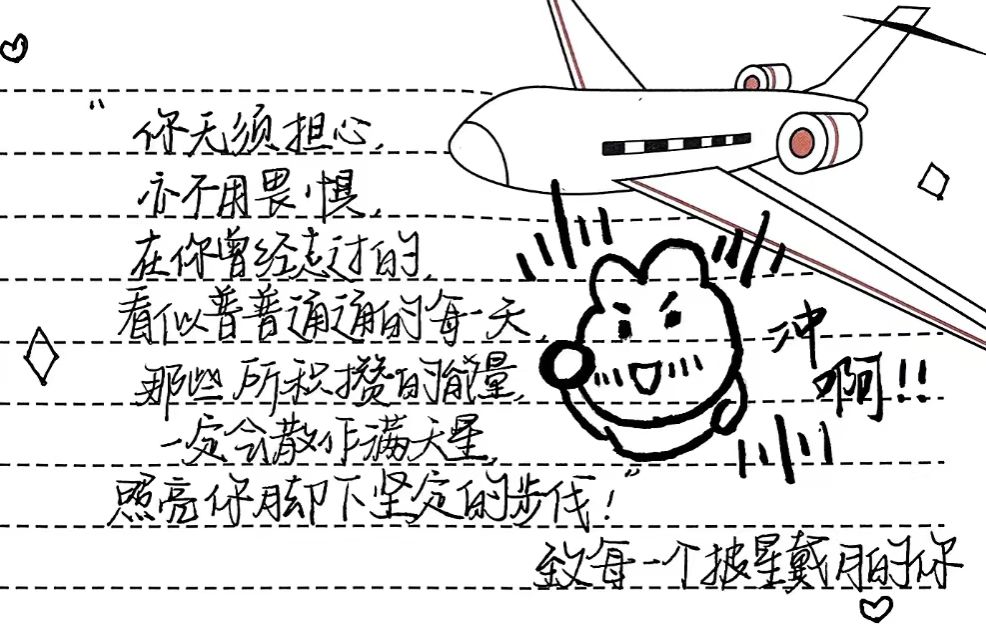 “你无须担心,
亦不用畏惧,
在你曾经志过的,
看似普普通通的每一天,
那些所积攒的能量,
一定会散作满天星,
照亮你脚下坚定的步伐!”
冲
啊!!
致每一个披星戴月的你